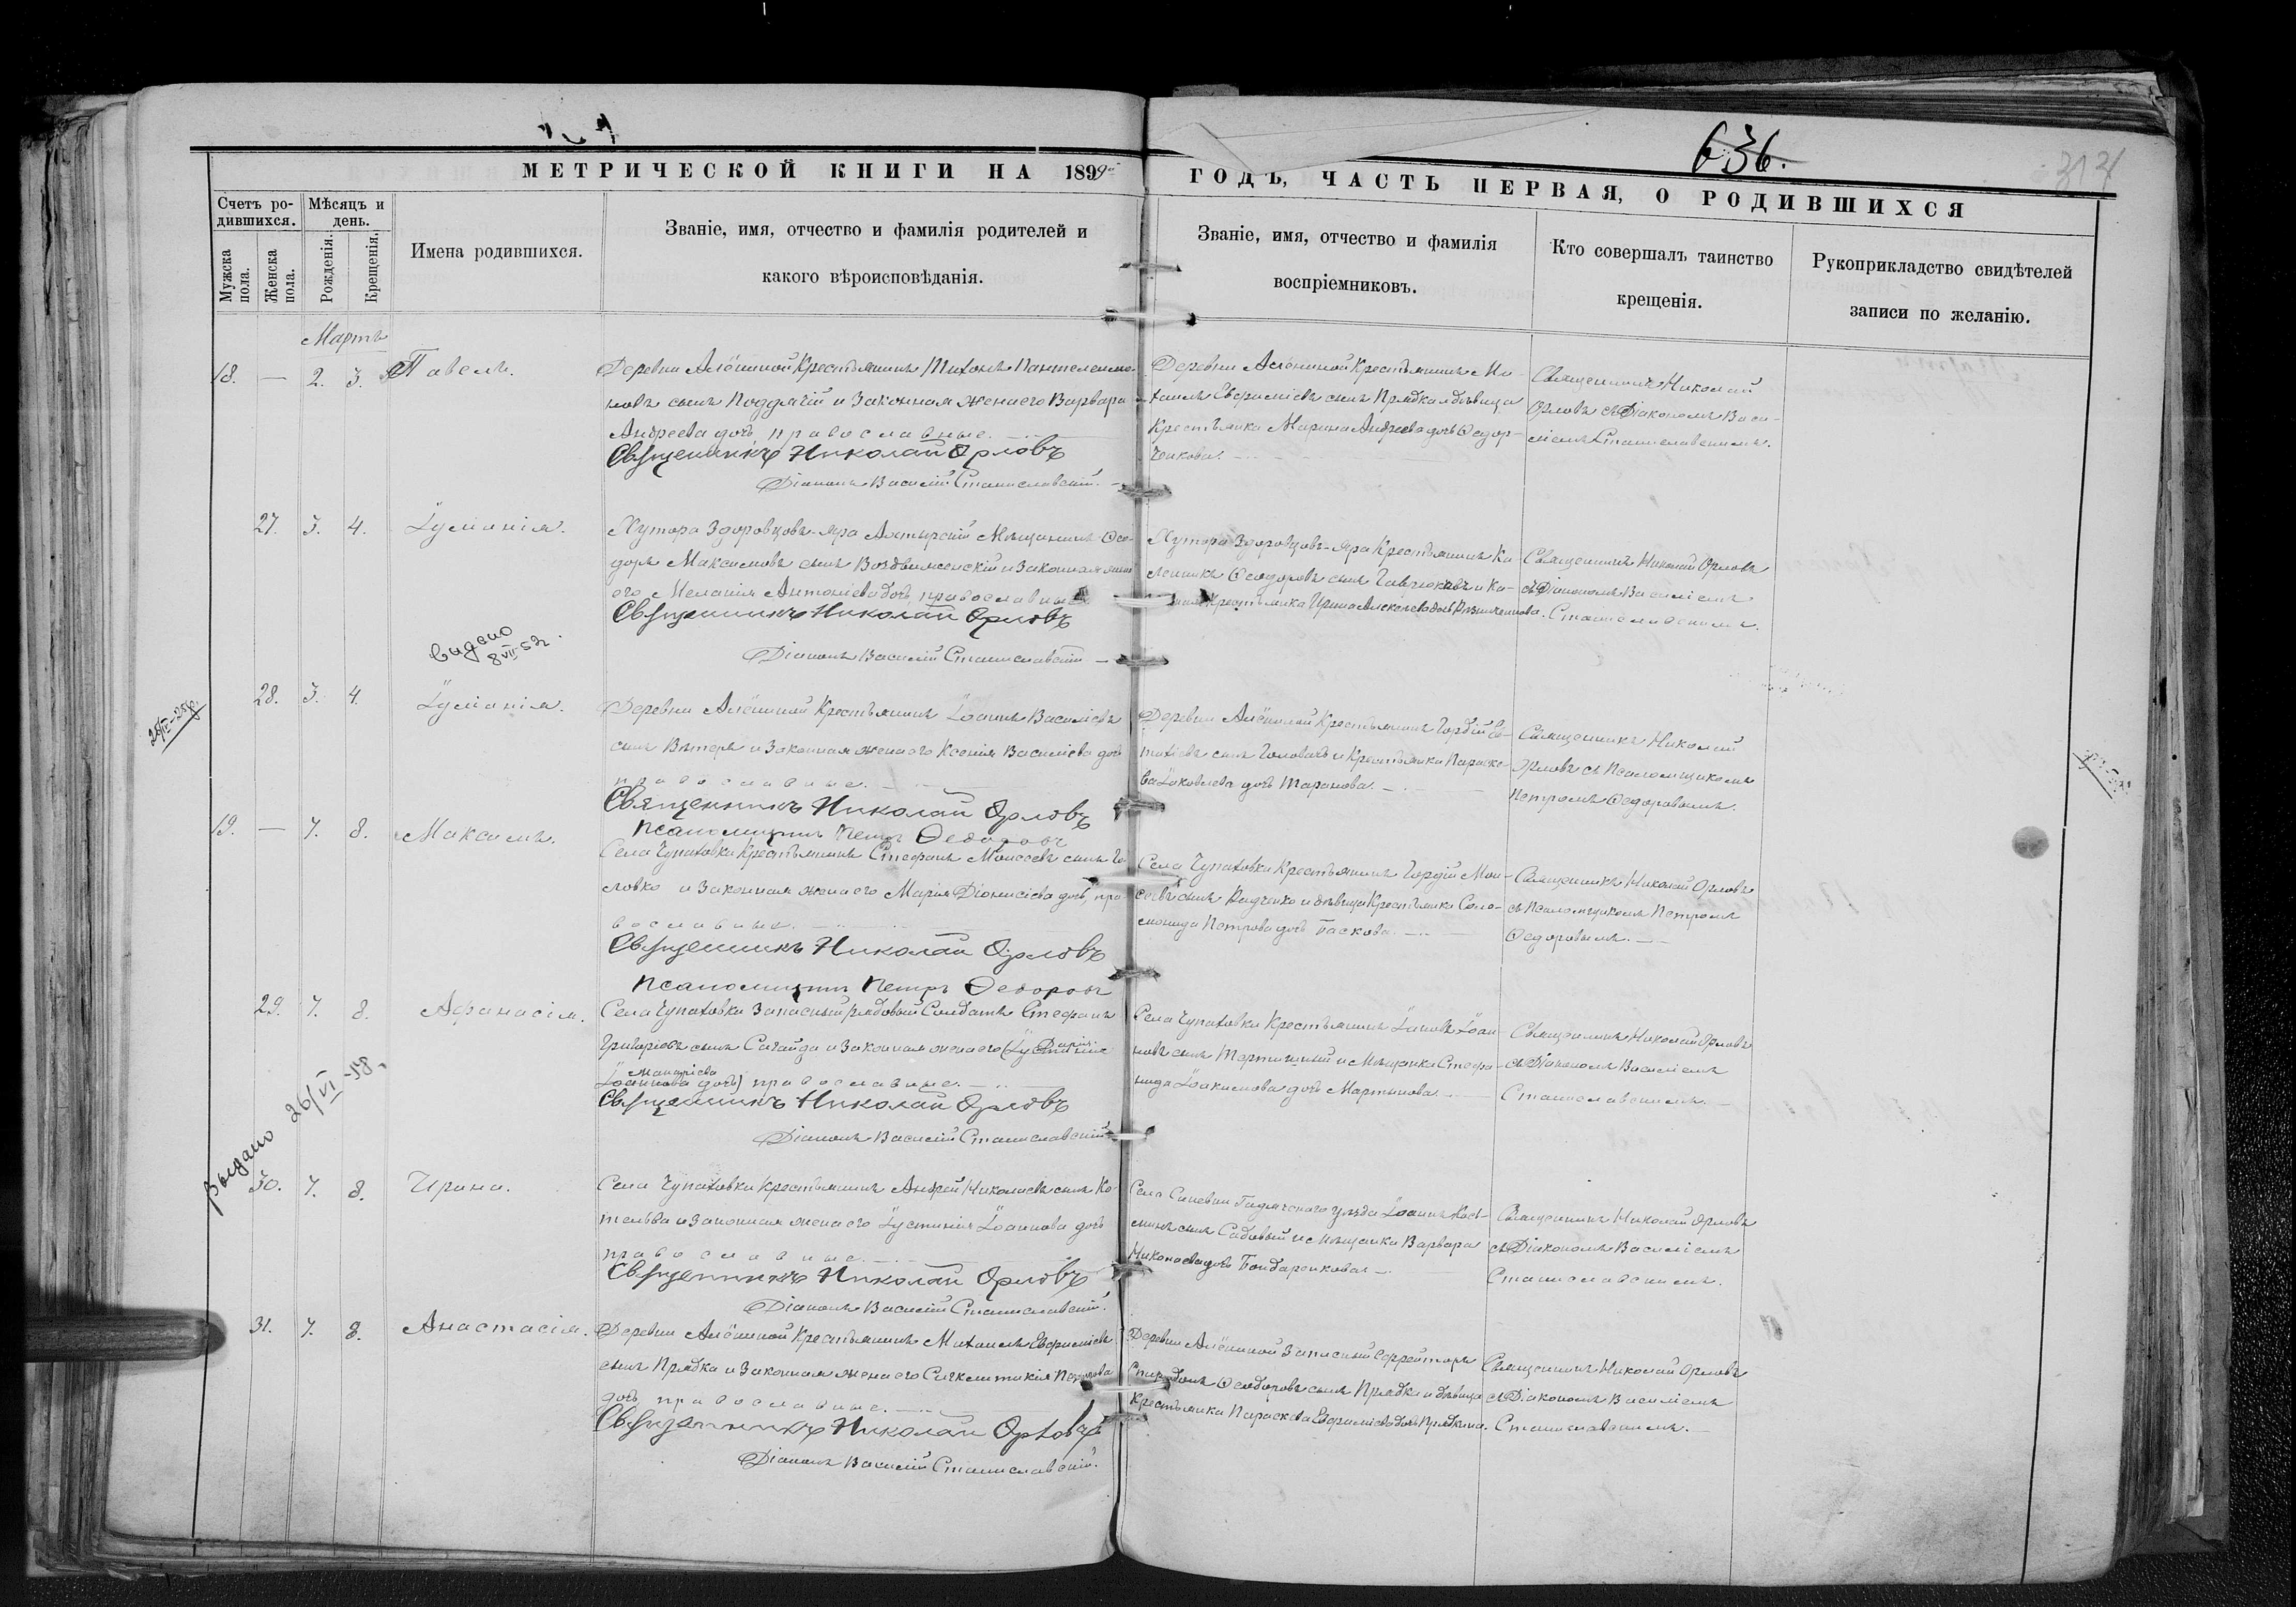 636.
МЕТРИЧЕСКОЙ КНИГИ НА 1899
ГОДЪ, ЧАСТЬ ПЕРВАЯ, О РОДИВШИХСЯ
Счетъ родившихся.
Мужска пола.
Женска пола.
Мѣсяцъ и день.
Рожденія.
Крещенія.
Имена родившихся.
Званіе, имя, отчество и фамилія родителей и
какого вѣроисповѣданія.
Званіе, имя, отчество и фамилія
воспріемниковъ.
Кто совершалъ таинство
крещенія.
Рукоприкладство свидѣтелей
записи по желанію.
Мартъ
18. — 2. 3. Павелъ.
Деревни Алёшиной Крестьянинъ Тихонъ Пантелеимо-
новъ сынъ Поддячій и Законная жена его Варвара
Андреева дочь, православные.
Священникъ Николай Орловъ
Діаконъ Василій Станиславскій.
Деревни Алёшиной Крестьянинъ Ми-
хаилъ Евфиміевъ сынъ Прядка и дѣвица
Крестьянка Марина Андреева дочь Федор-
ченкова.
Священникъ Николай
Орловъ съ Діакономъ Васи-
ліемъ Станиславскимъ.
27. 3. 4. Іуліанія.
Хутора Здоровцовъ-Яра Ахтырскій Мѣщанинъ Ѳео-
доръ Максимовъ сынъ Воздвиженскій и Законная жена
его Меланія Антоніева дочь, православные
Священникъ Николай Орловъ
Діаконъ Василій Станиславскій
Хутора Здоровцовъ-Яра Крестьянинъ Ка-
Ѳеодоровъ сынъ Гавчюковъ и
Крестьянка Ирина Алексѣева дочь
Священникъ Николай Орловъ
съ Діакономъ Василіемъ
Станиславскимъ.
видано
8 VII 52.
28. 3. 4. Іуліанія.
Деревни Алёшиной Крестьянинъ Іоаннъ Василіевъ
сынъ Вѣтеръ и Законная жена его Ксенія Василіева дочь
православные.
Священникъ Николай Орловъ
Псаломщикъ Петръ Ѳедоровъ
Деревни Алёшиной Крестьянинъ Гордій Ев-
тихіевъ сынъ Головачъ и Крестьянка Параске-
ва Іаковлева дочь Таранова.
Священникъ Николай
Орловъ съ Псаломщикомъ
Петромъ Ѳедоровымъ.
19. — 7. 8. Максимъ.
Села Чупаховки Крестьянинъ Стефанъ Моисеевъ сынъ Го-
ловко и Законная жена его Марія Діонисіева дочь, пра-
вославные.
Священникъ Николай Орловъ
Псаломщикъ Петръ Ѳедоровъ
Села Чупаховки Крестьянинъ Гордій Мои-
сеевъ сынъ Радченко и дѣвица Крестьянка Соло-
монида Петрова дочь Баскова.
Священникъ Николай Орловъ
съ Псаломщикомъ Петромъ
Ѳедоровымъ.
29. 7. 8. Афанасія.
Села Чупаховки Запасный рядовой Солдатъ Стефанъ
Григоріевъ сынъ Сагайда и Законная жена его (Іустинія
Дарія
Іоаннова дочь) православные.
Священникъ Николай Орловъ
Діаконъ Василій Станиславскій
Села Чупаховки Крестьянинъ Іаковъ Іоан-
новъ сынъ Тертишный и Мѣщанка Стефа-
нида Іоакимова дочь Мартынова.
Священникъ Николай Орловъ
съ Діакономъ Василіемъ
Станиславскимъ.
Выдано 26/VI-58.
30. 7. 8. Ирина.
Села Чупаховки Крестьянинъ Андрей Николаевъ сынъ Ко-
тельва и Законная жена его Іустинія Іоаннова дочь
православные.
Священникъ Николай Орловъ
Діаконъ Василій Станиславскій.
Села Синевки Гадячскаго уѣзда Іоаннъ
сынъ Садовый и Мѣщанка Варвара
Николаева дочь Бондаренкова.
Священникъ Николай Орловъ
съ Діакономъ Василіемъ
Станиславскимъ.
31. 7. 8. Анастасія.
Деревни Алёшиной Крестьянинъ Михаилъ Евфиміевъ
сынъ Прядка и Законная жена его Сигклитикія Петрова
дочь, православные.
Священникъ Николай Орловъ
Діаконъ Василій Станиславскій.
Деревни Алёшиной Запасный Ефрейторъ
Спиридонъ Ѳеодоровъ сынъ Прядка и дѣвица
Крестьянка Параскева Евфиміева дочь Прядкина.
Священникъ Николай Орловъ
съ Діакономъ Василіемъ
Станиславскимъ.